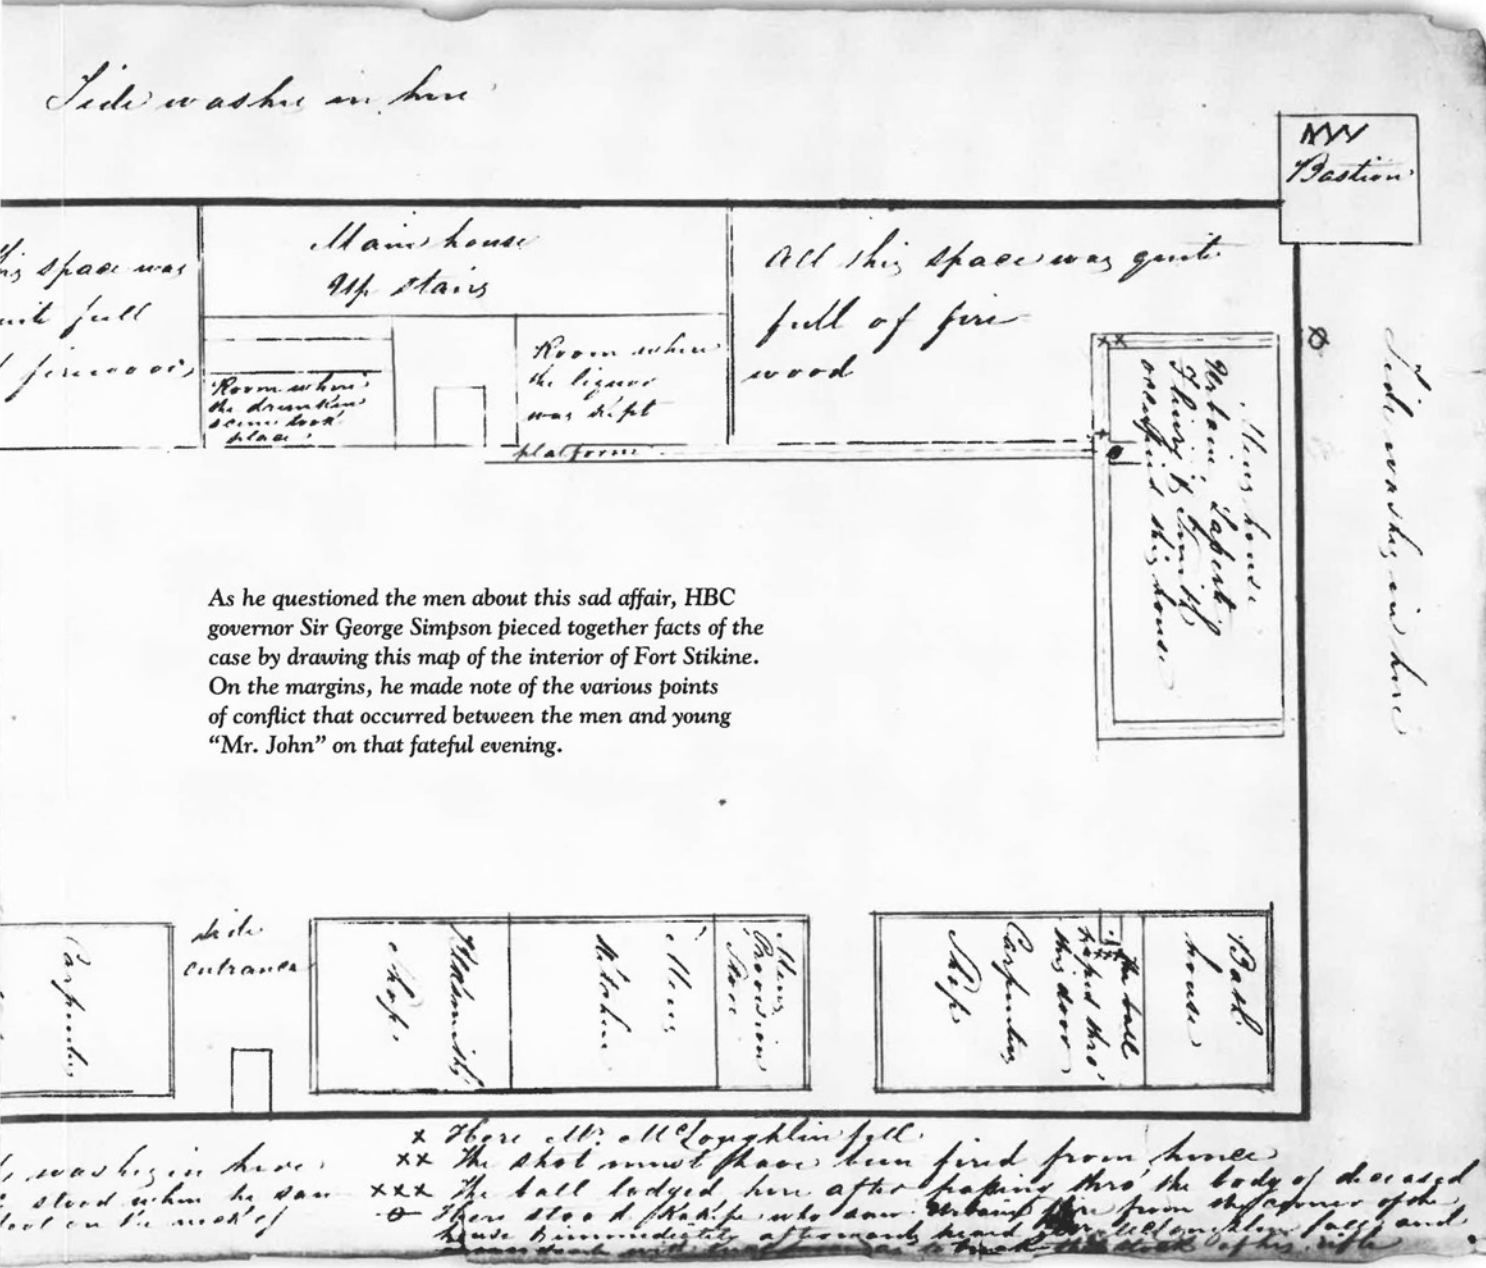 Tide washes in here
NW
Bastion
this space was
quite full
firewood
Main house
Up stairs
Room where
the drunken
scene took
place
Room where
the liquor
was kept
platform
All this space was quite
full of fire
wood
Mens house
Urbain, Laperti
& Smith
occupied this house
Tide washes in here
As he questioned the men about this sad affair, HBC
governor Sir George Simpson pieced together facts of the
case by drawing this map of the interior of Fort Stikine.
On the margins, he made note of the various points
of conflict that occurred between the men and young
“Mr. John” on that fateful evening.
Carpenters
side
entrance
Blacksmiths
Shop
Mens
Kitchen
Mens
Provision
Store
Carpenters
Shop
The ball
passed thro'
this door
Bath
house
washes in here
stood when he saw
foot on the neck of
x Here Mr. McLoughlin fell
xx The shot must have been fired from hence
xxx The ball lodged here after passing thro' the body of deceased
Here stood Kakepe who saw Urbain fire from the corner of the
house & immediately afterwards heard McLoughlin fall and
the stock of his rifle